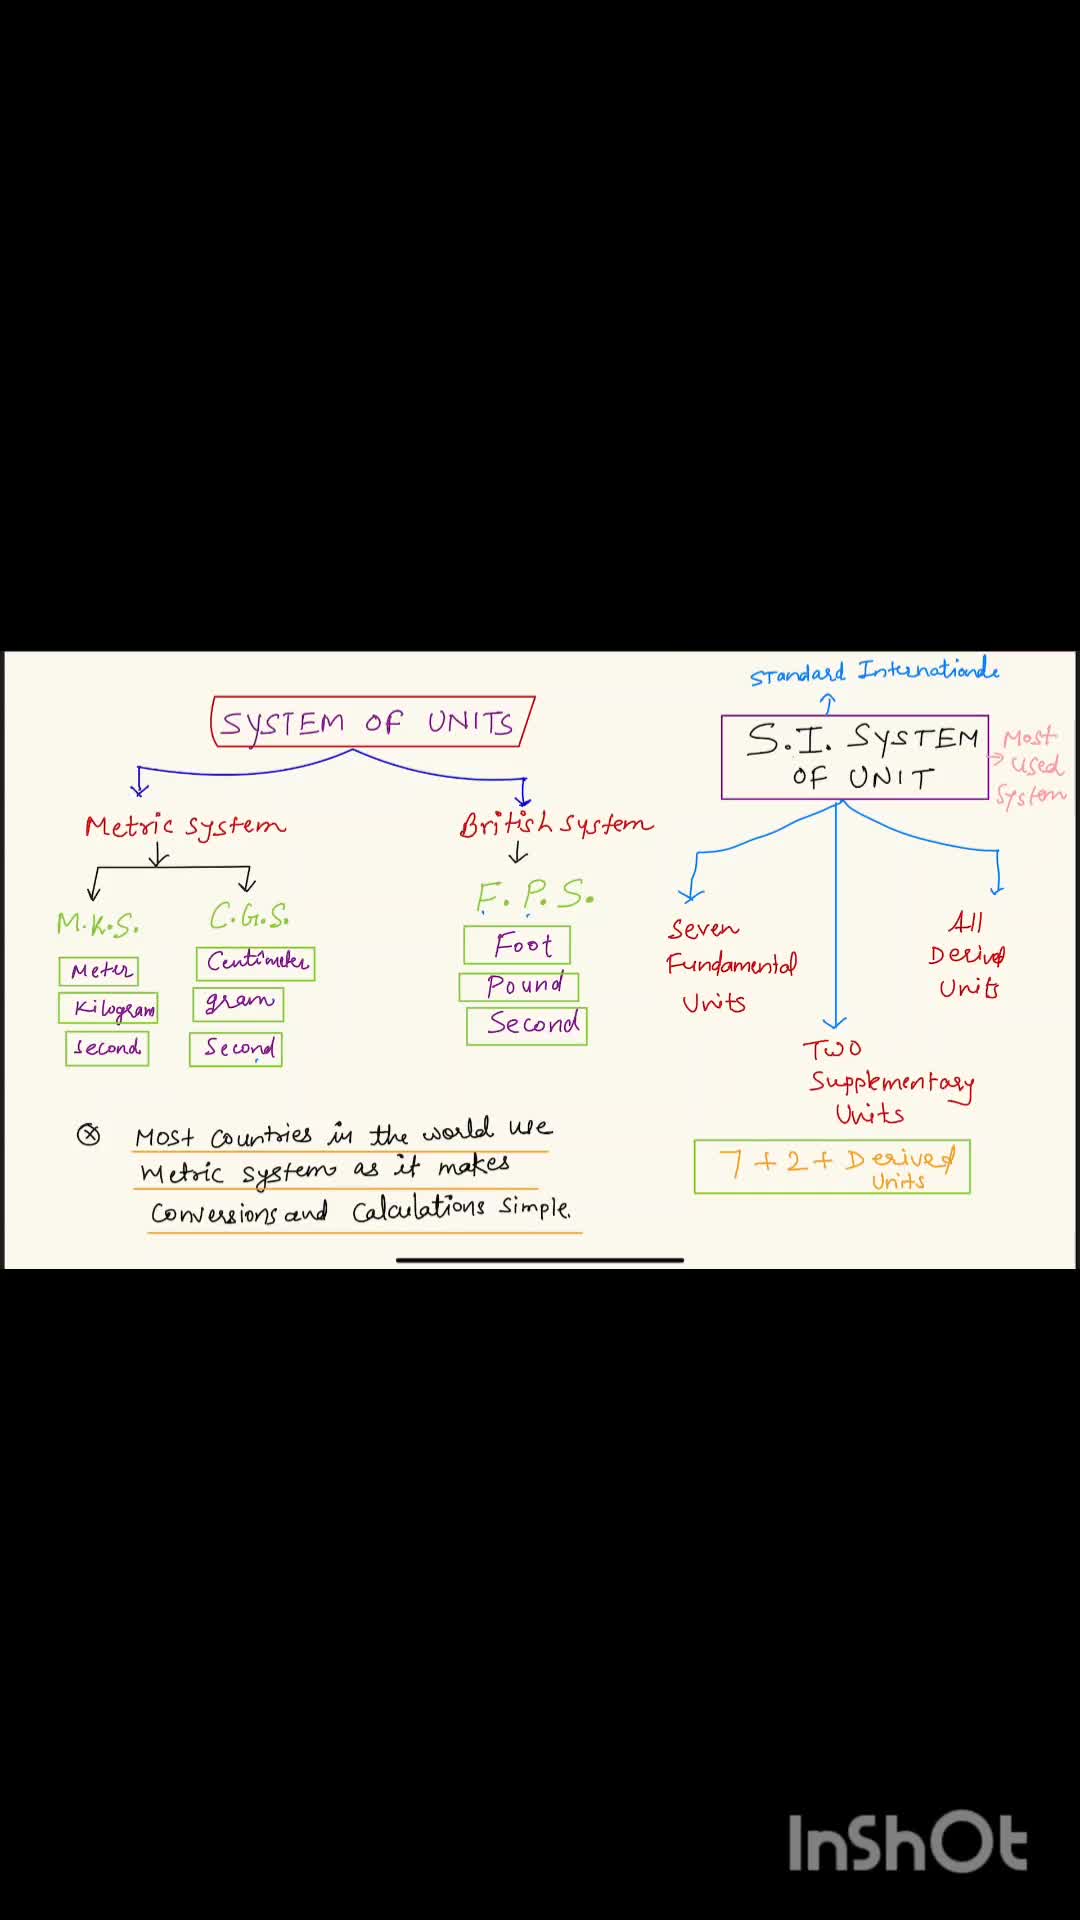 SYSTEM OF UNITS
Metric system
M.K.S.
Meter
Kilogram
second
C.G.S.
Centimeter
gram
Second
British system
F.P.S.
Foot
Pound
Second
Most countries in the world use
Metric system as it makes
conversions and calculations simple.
Standard Internationale
S.I. SYSTEM
OF UNIT
Most
Used
System
Seven
Fundamental
Units
Two
Supplementary
Units
All
Derived
Units
7 + 2 + Derived
Units
InShOt